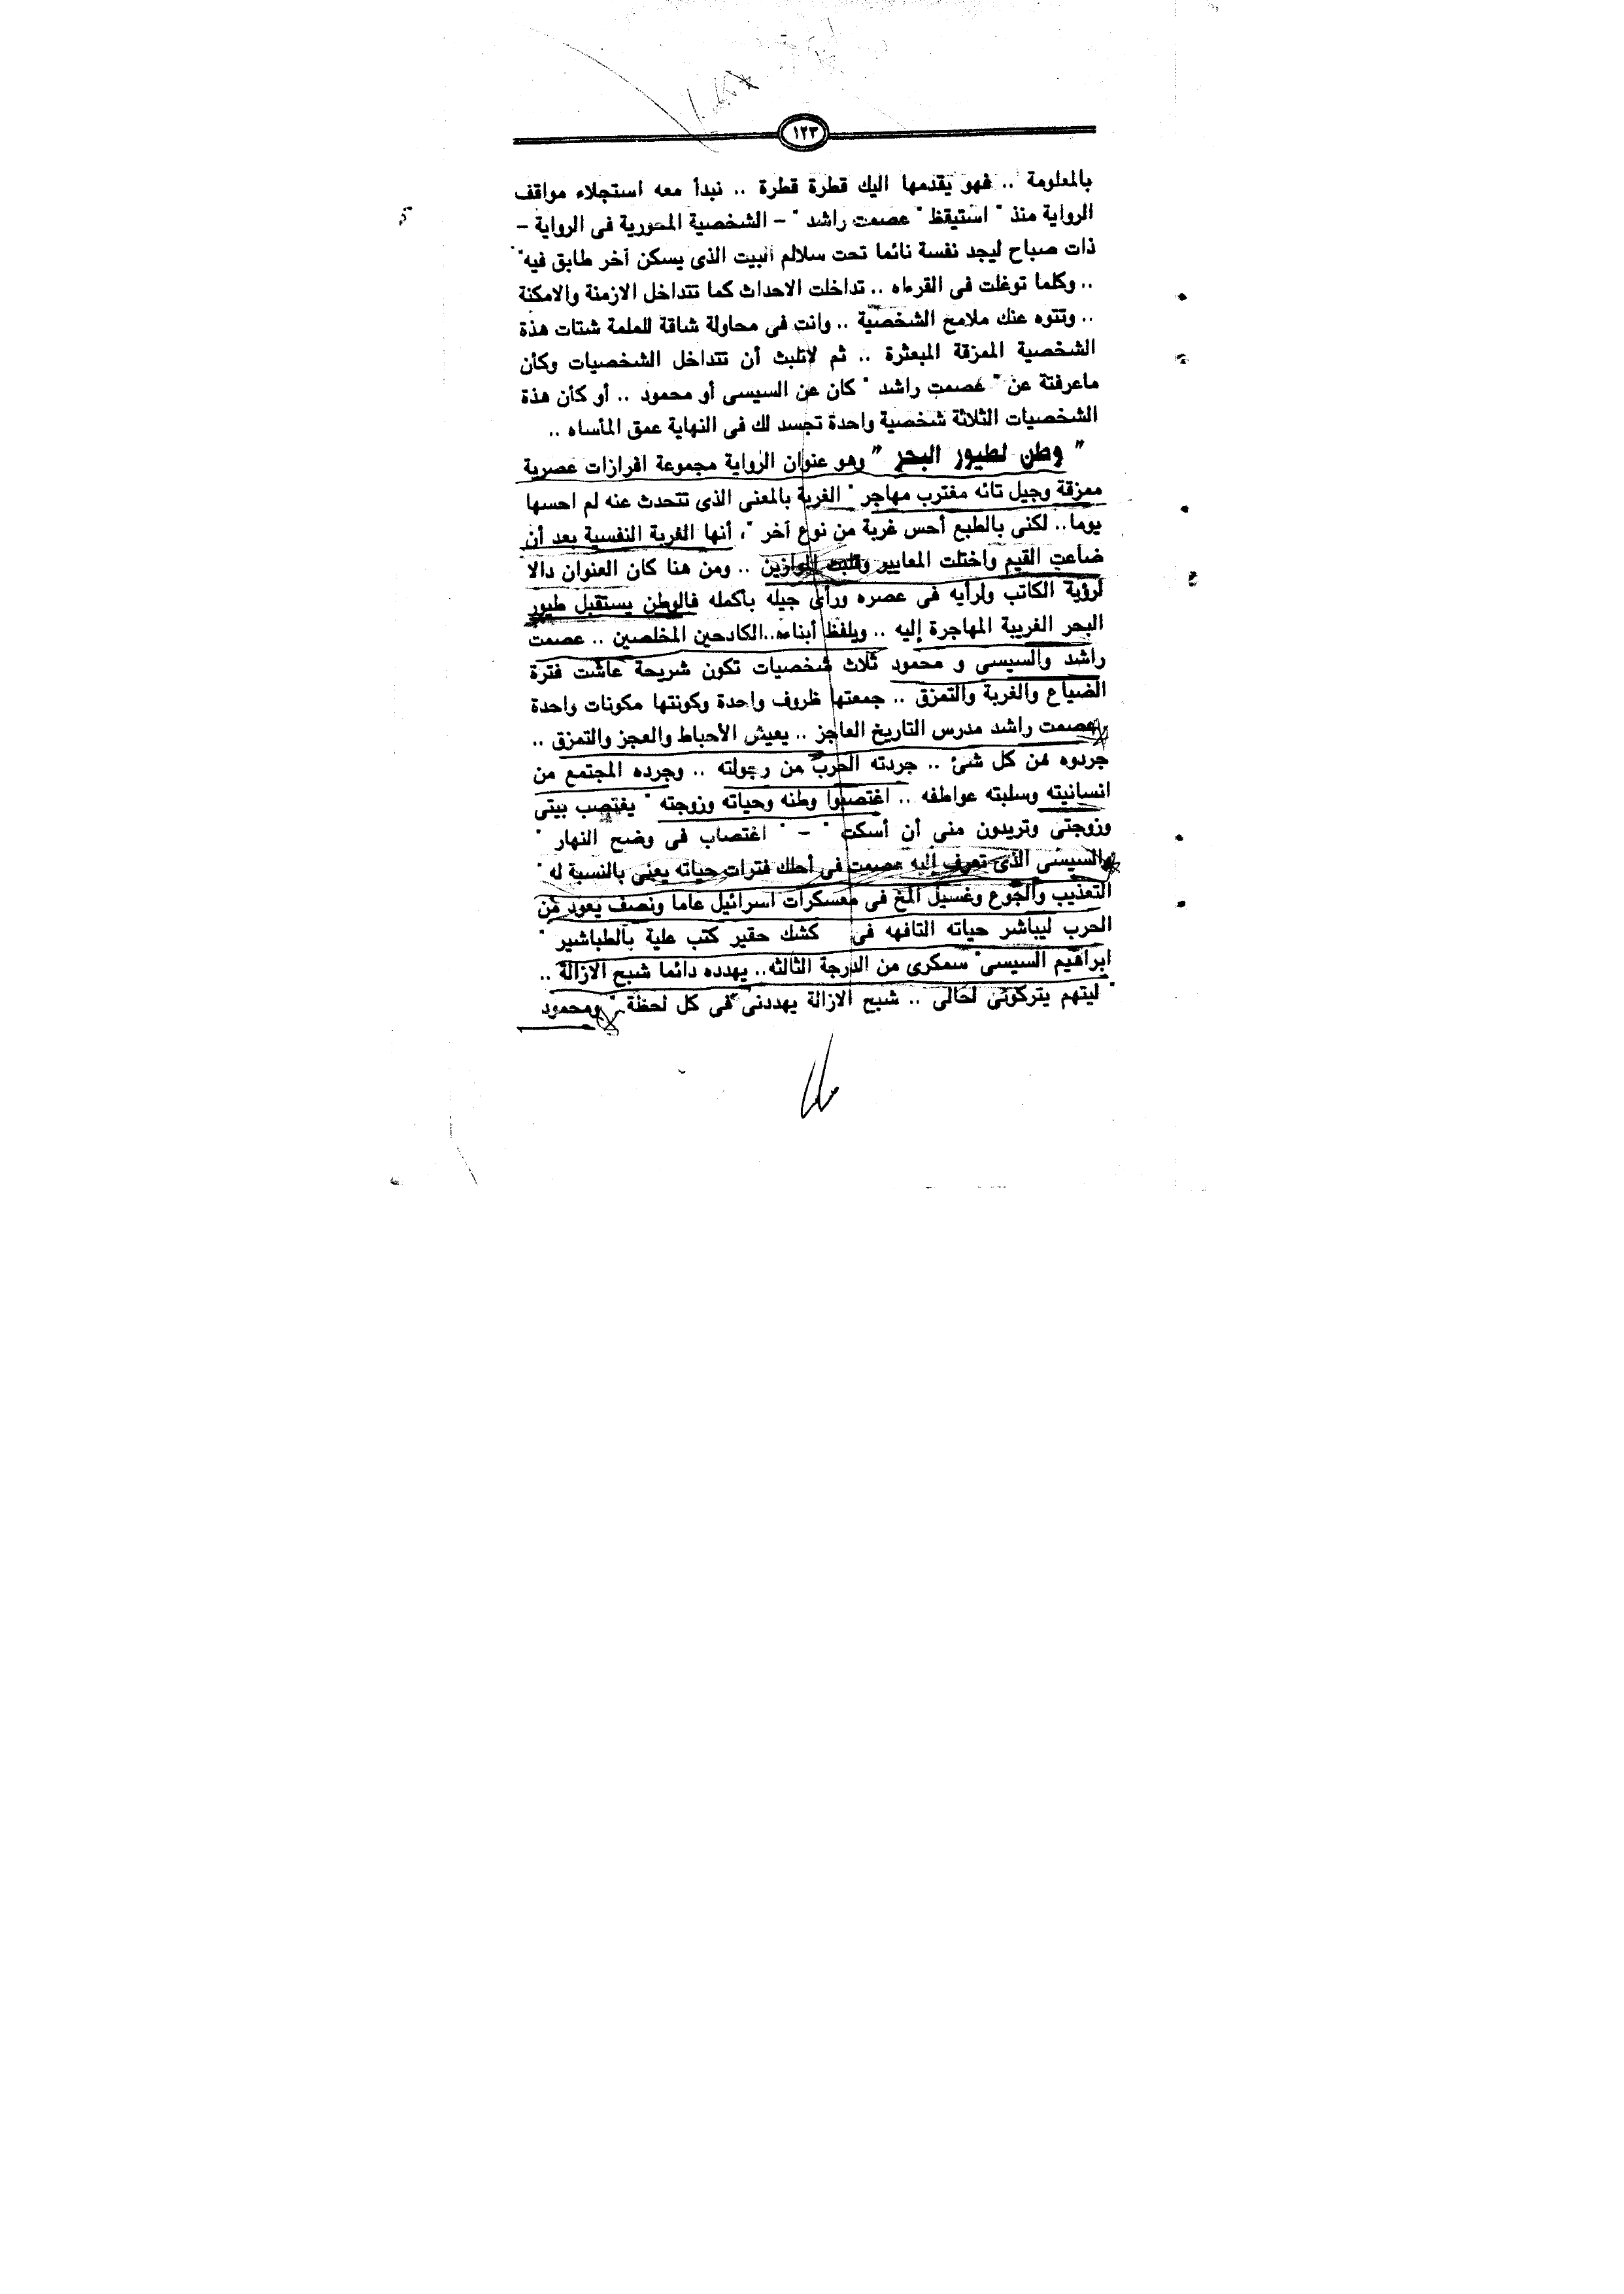 ١٢٣
بالمعلومة .. فهو يقدمها اليك قطرة قطرة .. نبدأ معه استجلاء مواقف
الرواية منذ " استيقظ " عصمت راشد " – الشخصية المحورية فى الرواية –
ذات صباح ليجد نفسة نائما تحت سلالم البيت الذى يسكن آخر طابق فيه"
.. وكلما توغلت فى القرءاه .. تداخلت الاحداث كما تتداخل الازمنة والامكنة
.. وتتوه عنك ملامح الشخصية .. وانت فى محاولة شاقة للملمة شتات هذة
الشخصية الممزقة المبعثرة .. ثم لاتلبث أن تتداخل الشخصيات وكأن
ماعرفتة عن " عصمت راشد " كان عن السيسى أو محمود .. أو كأن هذة
الشخصيات الثلاثة شخصية واحدة تجسد لك فى النهاية عمق المأساه ..
" وطن لطيور البحر " وهو عنوان الرواية مجموعة افرازات عصرية
ممزقة وجيل تائه مغترب مهاجر " الغربة بالمعنى الذى تتحدث عنه لم احسها
يوما.. لكنى بالطبع أحس غربة من نوع آخر "، أنها الغربة النفسية بعد أن
ضاعت القيم واختلت المعايير وقلبت الموازين .. ومن هنا كان العنوان دالا
لرؤية الكاتب ولرأيه فى عصره ورأى جيله بأكمله فالوطن يستقبل طيور
البحر الغريبة المهاجرة إليه .. ويلفظ أبناءه..الكادحين المخلصين .. عصمت
راشد والسيسى و محمود ثلاث شخصيات تكون شريحة عاشت فترة
الضياع والغربة والتمزق .. جمعتها ظروف واحدة وكونتها مكونات واحدة
عصمت راشد مدرس التاريخ العاجز .. يعيش الأحباط والعجز والتمزق ..
جردوه من كل شئ .. جردته الحرب من رجولته .. وجرده المجتمع من
انسانيته وسلبته عواطفه .. اغتصبوا وطنه وحياته وزوجته " يغتصب بيتى
وزوجتى وتريدون منى أن أسكت " – " اغتصاب فى وضح النهار "
والسيسى الذى تعرف إليه عصمت فى أحلك فترات حياته يعنى بالنسبة له "
التعذيب والجوع وغسيل المخ فى معسكرات اسرائيل عاما ونصف يعود من
الحرب ليباشر حياته التافهه فى كشك حقير كتب علية بالطباشير "
ابراهيم السيسى" سمكرى من الدرجة الثالثه.. يهدده دائما شبح الازالة ..
" ليتهم يتركونى لحالى .. شبح الازالة يهددنى فى كل لحظة " ومحمود